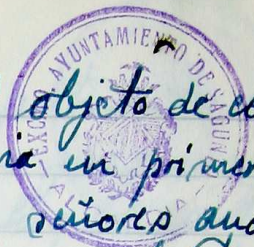 EXCMO. AYUNTAMIENTO DE SAGUN
objeto de co
rá en primer
señores que
ALCALDIA